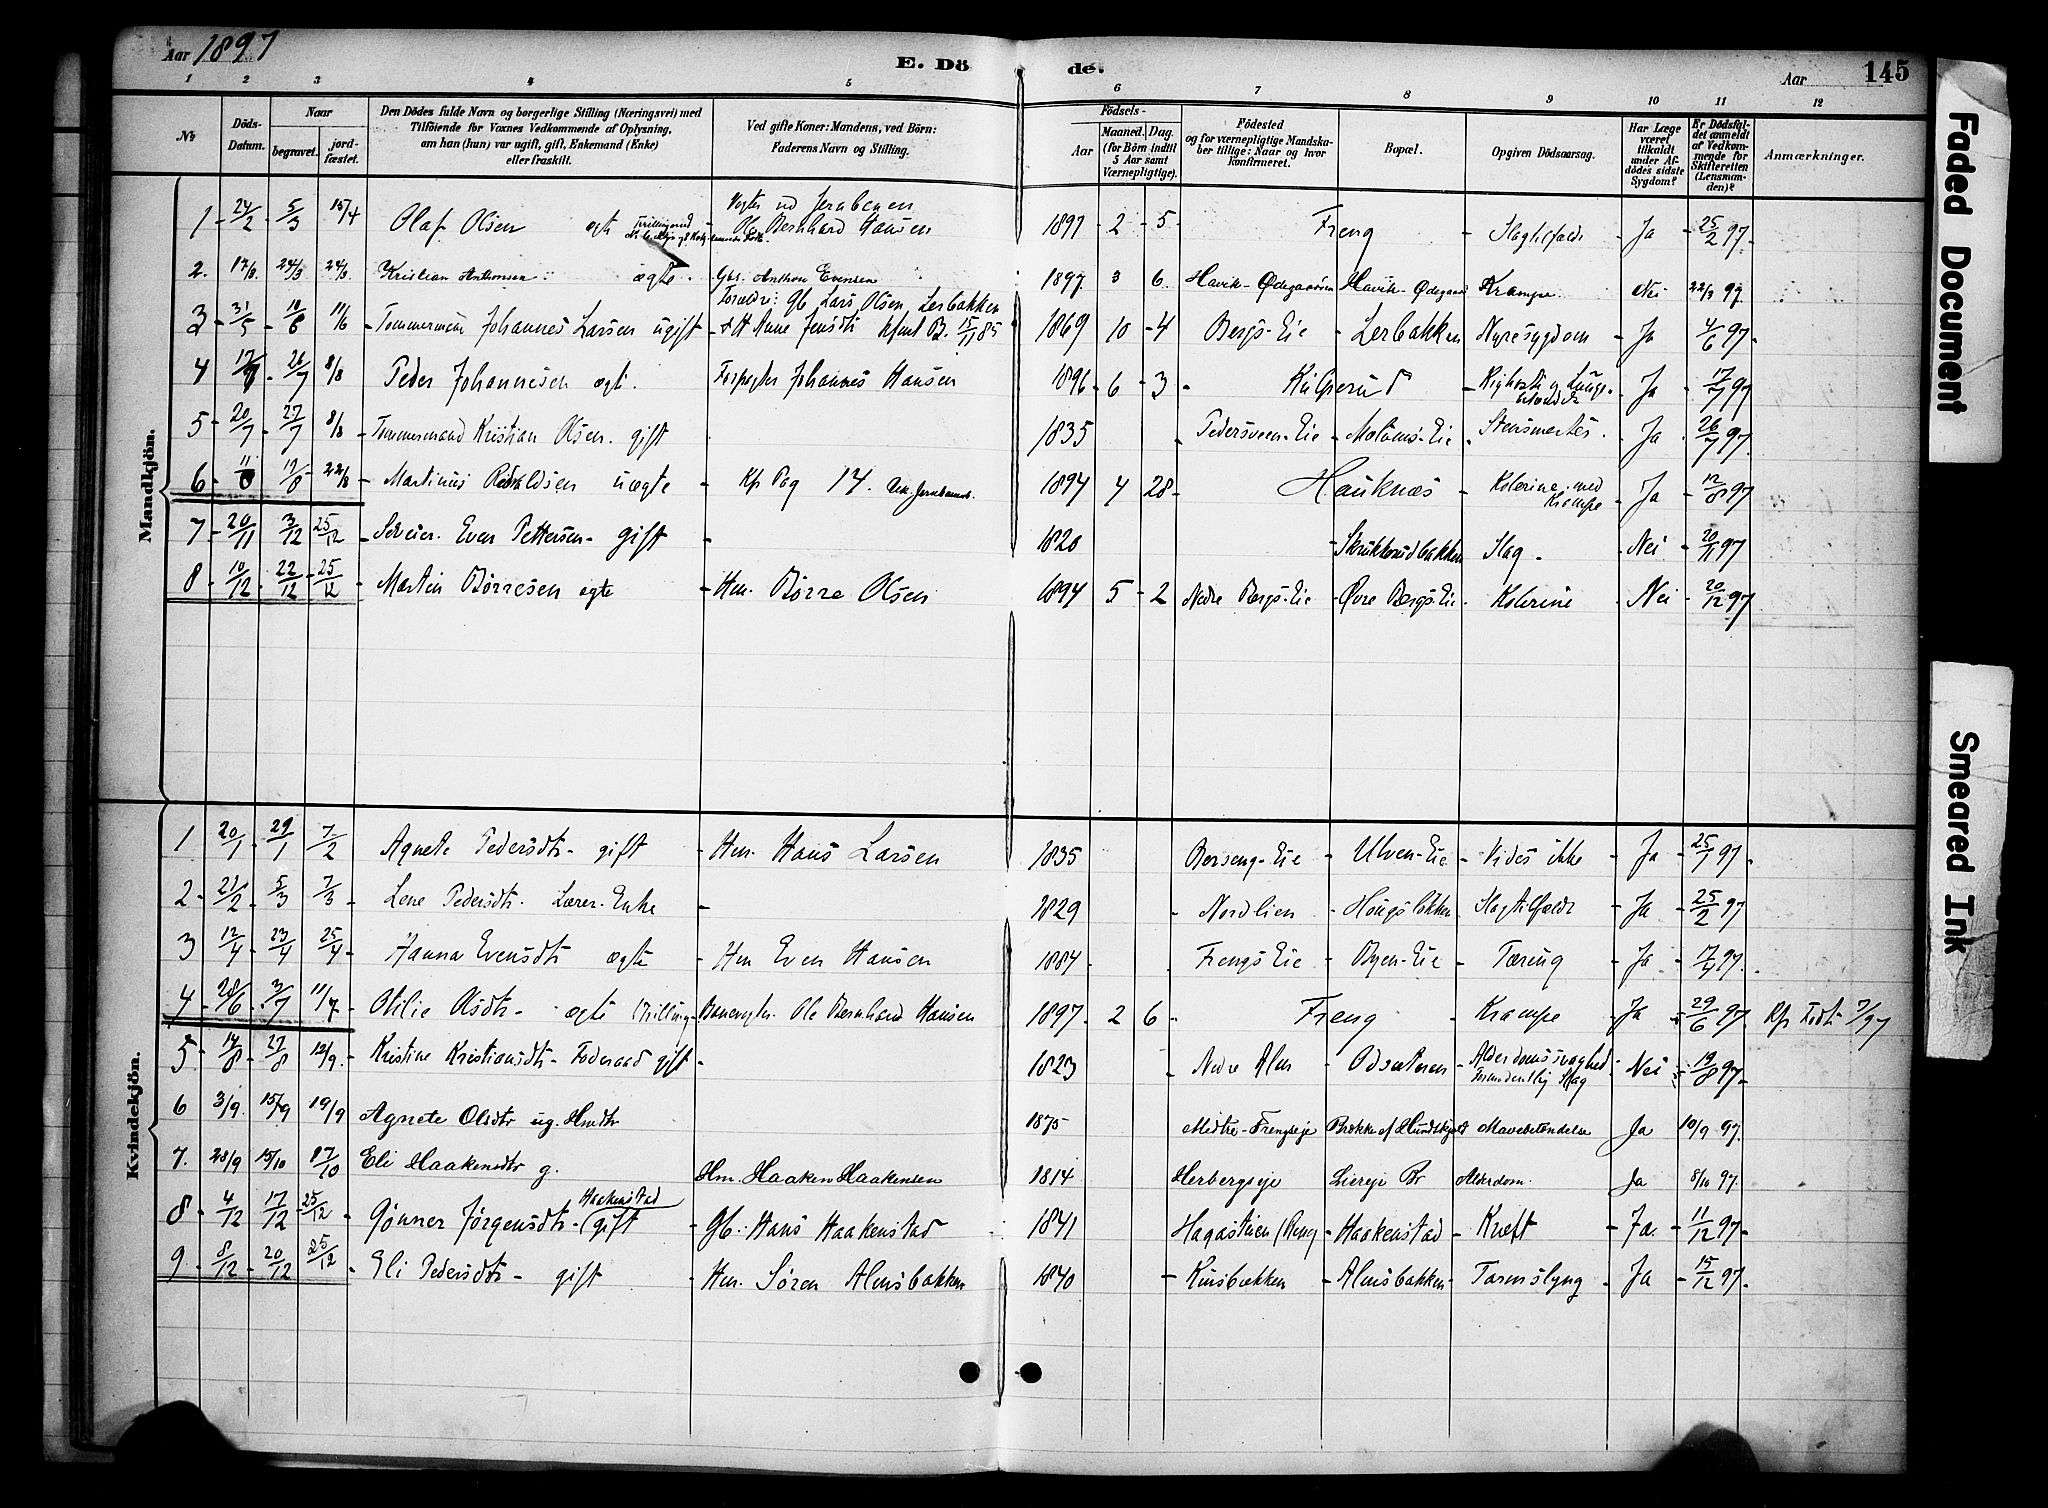 Aar 1897
E. Dö
de.
Aar
145
1 2 3 4 5 6 7 8 9 10 11 12
No
Döds-Datum.
Naar
begravet.
jordfæstet.
Den Dödes fulde Navn og borgerlige Stilling (Næringsvei) med
Tilföiende for Voxnes Vedkommende af Oplysning,
om han (hun) var ugift, gift, Enkemand (Enke)
eller fraskilt.
Ved gifte Koner: Mandens, ved Börn:
Faderens Navn og Stilling.
Födsels-
Aar
Maaned. Dag.
(for Börn indtil
5 Aar samt
Værnepligtige).
Födested
og for værnepligtige Mandska-
ber tillige: Naar og hvor
konfirmeret.
Bopæl.
Opgiven Dödsaarsag.
Har Læge
været
tilkaldt
under Af-
dödes sidste
Sygdom?
Er Dödsfal-
det anmeldt
af Vedkom-
mende for
Skifteretten
(Lensman-
den)?
Anmærkninger.
Mandkjön.
1 - 24/2 5/3 15/4 Olaf Olsen ægte Ole Bernhard Hansen 1897 - 2 - 5 Freng - Slagtilfælde - Ja - 25/2 97.
2. 24/3 Kristian Anthonsen ægte Gbr. Anthon Evensen 1897. 3 6. Havik-Ødegaarden Havik-Ødegaard Krampe. Nei 22/3 97.
Forældre: Gb Lars Olsen Lerbakken
3 - 31/5 - 10/6 11/6 - Tømmermand Johannes Larsen ugift - 1869 10 - 4 Bergs-Eie - Lerbakken Nyresygdom - Ja - 4/6 97.
4 26/7 8/8 Peder Johannesen ægte. Forpagter Johannes Hansen 1896 - 6 - 3 - - Ja - 17/7 97
5 - 20/7 - 27/7 8/8 - Tømmermand Kristian Olsen. gift 1835 - Pedersveen-Eie - - Ja - 26/7 97.
6 - 19/8 22/8 - Martinus uægte - Kp Pag 17. 1894 4 28 - Hauknæs - Kolerine med Krampe - Ja - 12/8 97
7 - 20/11 - 3/12 25/12 - Selveier Even Pettersen - gift - 1820 - Slag - - Nei - 20/11 97
8 - 10/12 - 22/12 - 25/12 - Martin Børresen ægte - Hm. Børre Olsen 1894 5 - 2 Nedre Bergs-Eie - Øvre Bergs-Eie - Kolerine - Nei - 20/12 97
Kvindekjön.
1 20/1 - 29/1 7/2 Agnete Pedersdtr - gift - Hm. Hans Larsen 1835 Berseng-Eie - Ulven-Eie - Vides ikke - Ja - 25/1 97.
2 - 21/2 5/3 7/3 - Lene Pedersdtr. Lærer-Enke - 1829 - Nordlien - Slagtilfælde - Ja - 25/2 97
3 12/4 - 23/4 25/4 - Hanna Evensdtr ægte - Hm Even Hansen 1884 - Frengs Eie - Byen-Eie - Tæring - Ja - 17/4 97.
4 - 28/6 3/7 11/7 - Otilie Olsdtr - ægte (Trilling) - Banevogter Ole Bernhard Hansen 1897 - 2 6 - Freng - Krampe - Ja 29/6 97.
5 - 14/8 - 27/8 12/9 - Kristine Kristiansdtr - Føderaad gift - 1823 - Nedre Alm - Odsæteren - Alderdomssvaghed formodentlig Slag - Nei - 19/8 97 -
6 3/9. 15/9 19/9 Agnete Olsdtr ug. 1875 Medtre-Frengseje Mavebetændelse Ja 10/9 97.
7. 28/9 15/10 17/10 Eli Haakensdtr g. Hm. Haaken Haakensen 1814 Herbergseje Liereje Br Alderdom. Ja 8/10 97.
Haakenstad
8 - 4/12 17/12 - 25/12 - Gunner Jørgensdtr - gift - Gb: Hans Haakenstad 1841 - Haakenstad - Kræft - Ja. - 11/12 97
9 - 8/12 - 20/12 25/12 - Eli Pedersdtr - gift - Hm. Søren Almsbakken 1840 - - Almsbakken - Ja - 15/12 97.
Faded Document
Smeared Ink